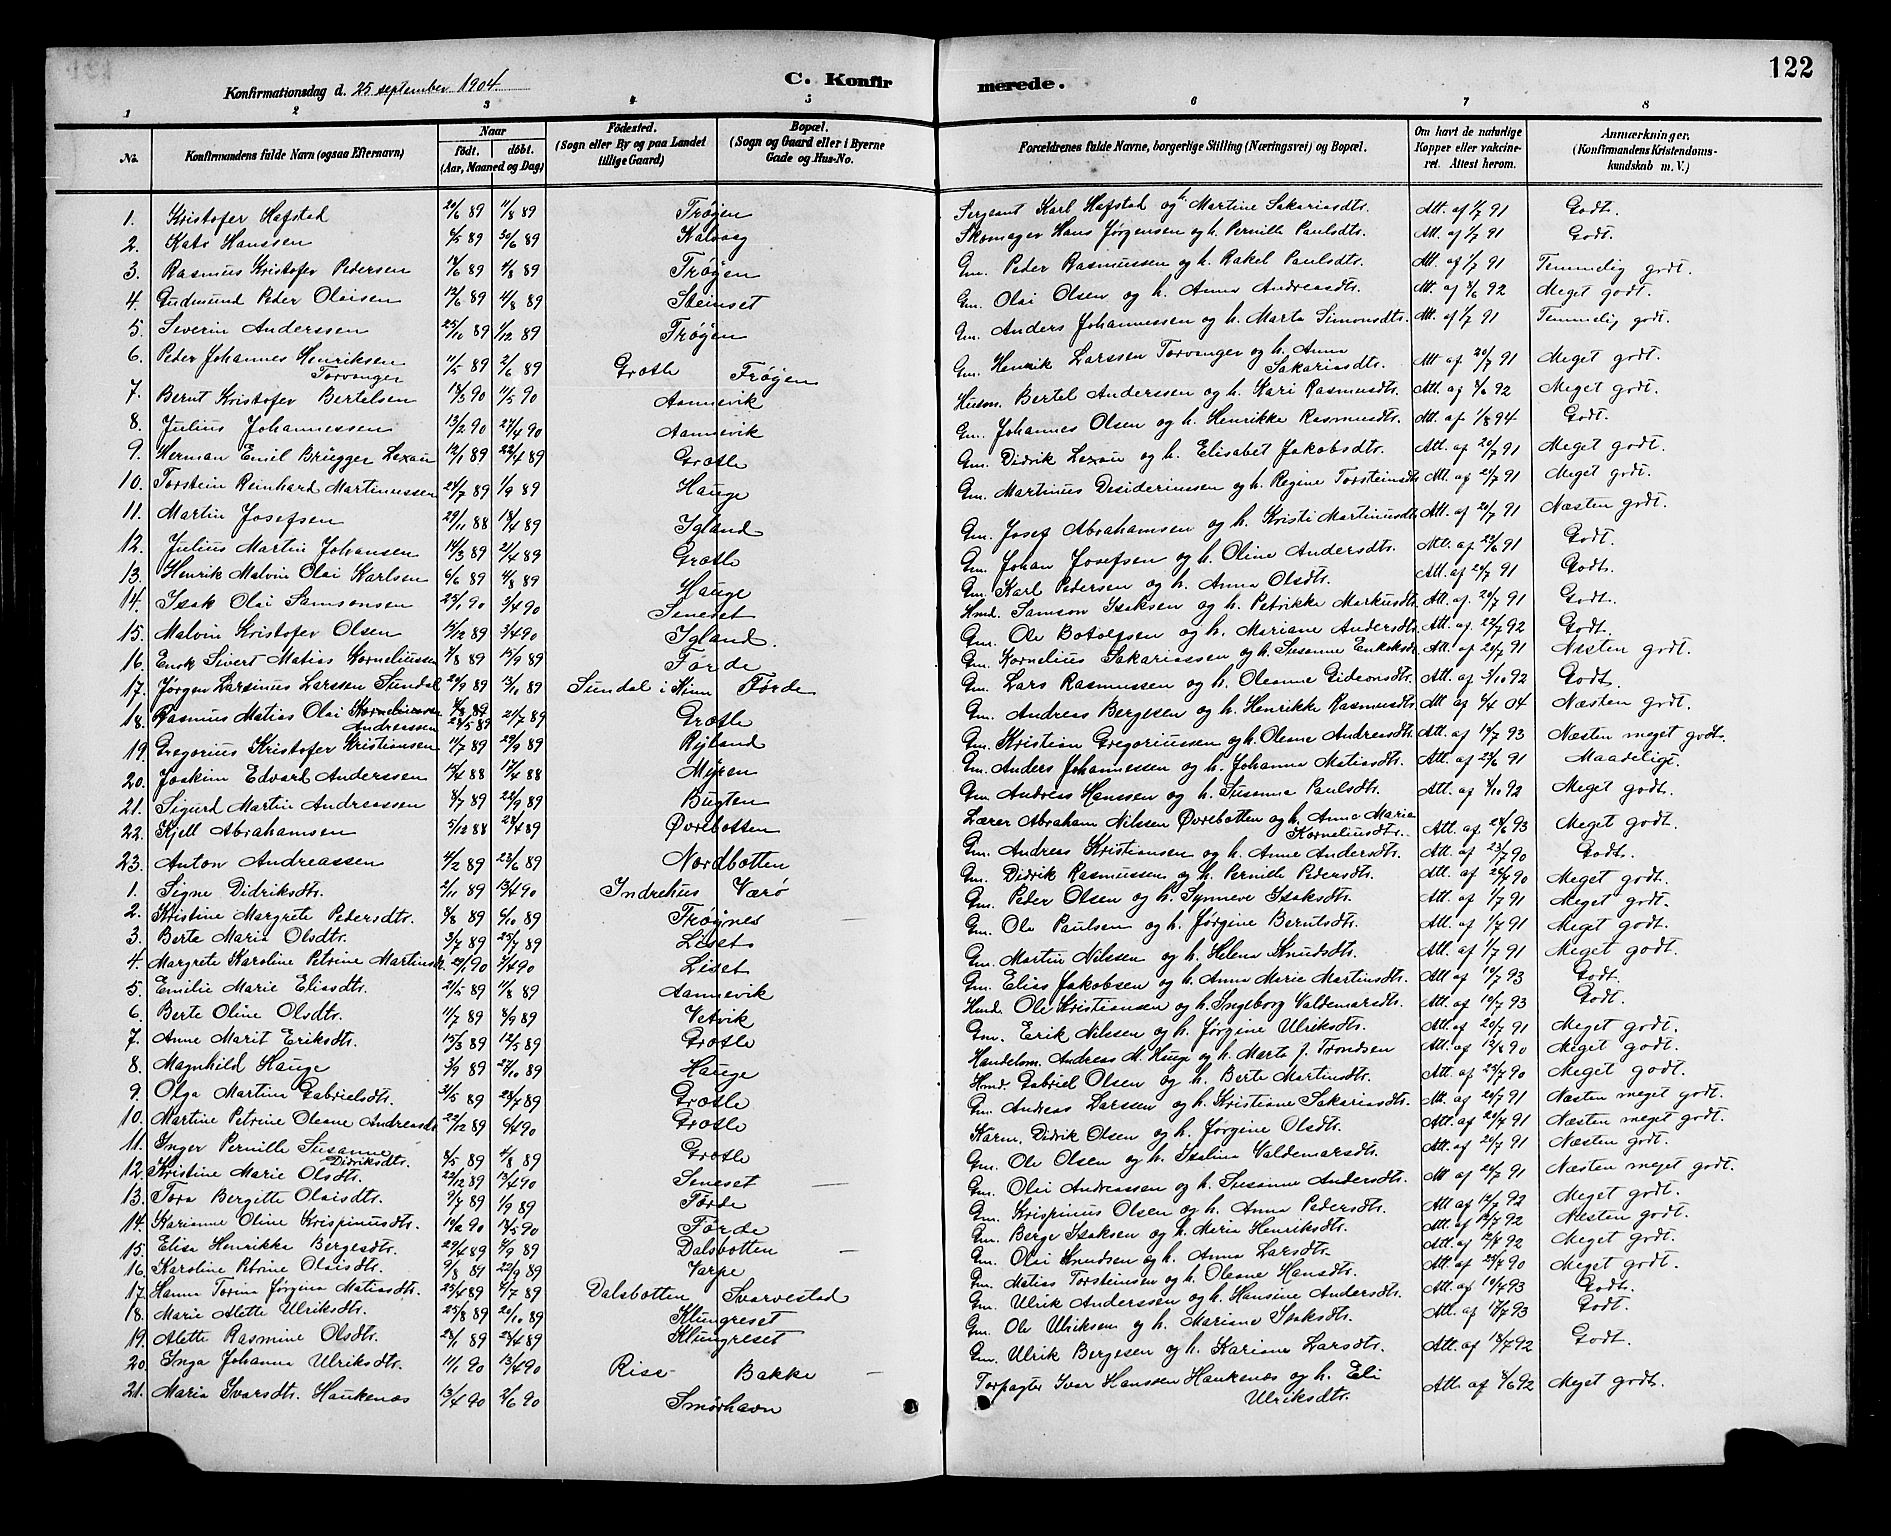 122
Konfirmationsdag d. 25 september 1904. C. Konfir merede.
1 2 3 4 5 6 7 8
No. Konfirmandens fulde Navn (ogsaa Efternavn) Naar födt. döbt. (Aar, Maaned og Dag) Födested. (Sogn eller By og paa Landet tillige Gaard) Bopæl. (Sogn og Gaard eller i Byerne Gade og Hus-No. Forældrenes fulde Navne, borgerlige Stilling (Næringsvei) og Bopæl. Om havt de naturlige Kopper eller vakcineret. Attest herom. Anmærkninger. (Konfirmandens Kristendomskundskab m. V.)
1. Kristofer Hafstad 20/6 89 11/8 89 Frøyen Sergeant Karl Hafstad og h. Martine Sakariasdtr. Att. af 1/7 91 Godt.
2. Kato Hanssen 6/5 89 30/6 89 Kalvaag Skomager Hans Jørgensen og h. Pernille Paulsdtr. Att. af 1/7 91 Godt.
3. Rasmus Kristofer Pedersen 89 4/8 89 Frøyen Gm. Peder Rasmussen og h. Rakel Paulsdtr. Att. af 1/7 91 Temmelig godt.
4. Gudmund Peder Olaisen 12/6 89 4/8 89 Steinset Gm. Olai Olsen og h. Anna Andreasdtr. Att. af 92 Meget godt.
5. Severin Anderssen 25/10 89 1/12 89 Frøyen Gm. Anders Johannessen og h. Marta Simonsdtr. Att. af 1/7 91 Temmelig godt.
6. Peder Johannes Henriksen Torvanger 11/5 89 2/6 89 Grotle Frøyen Gm. Henrik Larssen Torvanger og h. Anna Sakariasdtr. Att af 20/7 91 Meget godt.
7. Bernt Kristofer Bertelsen 90 11/5 90 Aannevik Husm. Bertel Anderssen og h. Kari Rasmusdtr. Att. af 92 Meget godt.
8. Julius Johannessen 13/2 90 27/4 90 Aannevik Gm. Johannes Olsen og h. Henrikke Rasmusdtr. Att. af 1/8 94 Godt.
9. Herman Emil Brügger Lexau 12/1 89 22/4 89 Grotle Gm. Didrik Lexau og h. Elisabet Jakobsdtr. Att. af 20/7 91 Meget godt.
10. Torstein Reinhard Martinussen 24/7 89 1/9 89 Hauge Gm. Martinus Desideriussen og h. Regine Torsteinsdtr. Att. af 21/7 91 Meget godt.
11. Martin Josefsen 29/11 88 18/4 89 Igland Gm. Josef Abrahamsen og h. Kristi Martinusdtr. Att. af 20/7 91 Næsten godt.
12. Julius Martin Johansen 14/3 89 21/4 89 Grotle Gm. Johan Josefsen og h. Oline Andersdtr. Att. af 91 Godt.
13. Henrik Malvin Olai Karlsen 6/6 89 4/8 89 Hauge Gm. Karl Pedersen og h. Anna Olsdtr. Att. af 91 Godt.
14. Isak Olai Samsonsen 25/1 90 3/4 90 Seneset Hmd. Samson Isaksen og h. Petrikke Markusdtr. Att. af 20/7 91 Godt.
15. Malvin Kristofer Olsen 15/12 89 3/4 90 Igland. Gm. Ole Botolfsen og h. Mariane Andersdtr. Att. af 22/7 92 Godt.
16. Enok Sivert Matias Korneliussen 7/8 89 15/9 89 Førde Gm. Kornelius Sakariassen og h. Susanne Enoksdtr. Att. af 20/7 91 Næsten godt.
17. Jørgen Larsinus Larssen Sundal 20/9 89 13/11 89 Sundal i Kinn Førde Gm. Lars Rasmussen og h. Oleanne Gideonsdtr. Att. af 92 Godt.
18. Rasmus Matias Olai Andreassen 28/5 89 21/7 89 Grotle Gm. Andreas Bergesen og h. Henrikke Rasmusdtr. Att af 04 Næsten godt.
19. Gregorius Kristofer Kristiansen 11/7 89 29/9 89 Ryland Gm. Kristian Gregoriussen og h. Oleane Andreasdtr. Att. af 93 Næsten meget godt.
20. Joakim Edvard Anderssen 88 88 Myren Gm. Anders Johannessen og h. Johanna Matiasdtr. Att. af 91 Maadeligt.
21. Sigurd Martin Andreassen 8/7 89 22/9 89 Bugten Gm. Andreas Hanssen og h. Susanna Paulsdtr. Att. af 92 Meget godt.
22. Kjell Abrahamsen 5/12 88 28/4 89 Øvrebotten Lærer Abraham Nilssen Øvrebotten og h. Anna Maria Korneliusdtr. Att. af 93 Meget godt.
23. Anton Andreassen 4/2 89 23/6 89 Nordbotten Gm. Andreas Kristiansen og h. Anne Andersdtr. Att. af 23/7 90 Godt.
1. Signe Didriksdtr. 2/11 89 13/4 90 Indrehus Værø Gm. Didrik Rasmussen og h. Pernille Pedersdtr. Att. af 90 Meget godt.
2. Kristine Margrete Pedersdtr. 8/8 89 6/10 89 Frøynes Gm. Peder Olsen og h. Synneve Isaksdtr. Att. af 1/7 91 Meget godt.
3. Berte Maria Olsdtr. 3/7 89 25/7 89 Liset Gm. Ole Paulsen og h. Jørgine Berntsdtr. Att. af 1/7 91 Meget godt.
4. Margrete Karoline Petrine Martinsdtr. 90 90 Liset Gm. Martin Nilssen og h. Helena Knudsdtr. Att. af 1/7 91 Meget godt.
5. Emilie Marie Eliasdtr. 21/5 89 11/8 89 Aannevik Gm. Elias Jakobsen og h. Anna Marie Martinsdtr. Att af 93 Godt.
6. Berte Oline Olsdtr. 11/7 89 8/9 89 Vetvik Hmd. Ole Kristiansen og h. Ingeborg Valdemarsdtr. Att. af 93 Godt.
7. Anne Marit Eriksdtr. 15/3 89 12/5 89 Grotle Gm. Erik Nilssen og h. Jørgine Ulriksdtr. Att. af 20/7 91 Meget godt.
8. Magnhild Hauge 3/9 89 27/10 89 Hauge Handelsm. Andreas M. Hauge og h. Marta J. Trondsen Att. af 13/8 90 Meget godt.
9. Olga Martina Gabrielsdtr. 31/5 89 28/7 89 Grotle Hmd. Gabriel Olsen og h. Berte Martinsdtr. Att. af 25/7 90 Meget godt.
10. Martine Petrine Oleane Andreasdtr 22/12 89 6/4 90 Grotle Gm. Andreas Larssen og h. Kristiane Sakariasdtr. Att. af 20/7 91 Næsten meget godt.
11. Inger Pernille Susanne Didriksdtr. 8/5 89 4/8 89 Grotle Kårm. Didrik Olsen og h. Jørgine Olsdtr. Att. af 20/7 91 Næsten meget godt.
12. Kristine Marie Olsdtr. 22/12 89 13/4 90 Seneset Gm. Ole Olsen og h. Italina Valdemarsdtr. Att. af 20/7 91 Næsten godt.
13. Tora Bergitte Olaisdtr. 9/7 89 1/9 89 Førde Gm. Olai Andreassen og h. Susanne Andersdtr. Att af 91 Næsten meget godt.
14. Karianne Oline Krispinusdtr. 90 90 Førde Gm. Krispinus Olsen og h. Anna Pedersdtr. Att af 92 Meget godt.
15. Elisa Henrikka Bergesdtr. 29/4 89 89 Dalsbotten Gm. Berge Isaksen og h. Maria Henriksdtr. Att. af 92 Næsten godt.
16. Karoline Petrine Olaisdtr. 9/8 89 22/9 89 Varpe Gm. Olai Knudsen og h. Anna Larsdtr. Att. af 92 Meget godt.
17. Hanna Torina Jørgina Matiasdtr. 89 89 Dalsbotten Svarvestad Gm. Matias Torsteinsen og h. Oleane Hansdtr. Att. af 90 Meget godt.
18. Marie Alette Ulriksdtr. 25/8 89 20/10 89 Klungreset Gm. Ulrik Anderssen og h. Hansine Andersdtr. Att. af 93 Godt.
19. Alette Rasmine Olsdtr. 89 89 Klungreset Gm. Ole Ulriksen og h. Mariane Isaksdtr. Att. af 93 Godt.
20. Inga Johanna Ulriksdtr. 11/1 90 13/4 90 Rise Bakke Gm. Ulrik Bergesen og h. Kariane Larsdtr. Att. af 92 Godt.
21. Maria Ivarsdtr. Haukenæs 13/4 90 2/6 90 Smørhavn Forpagter Ivar Hanssen Haukenæs og h. Eli Ulriksdtr. Att. af 92 Meget godt.